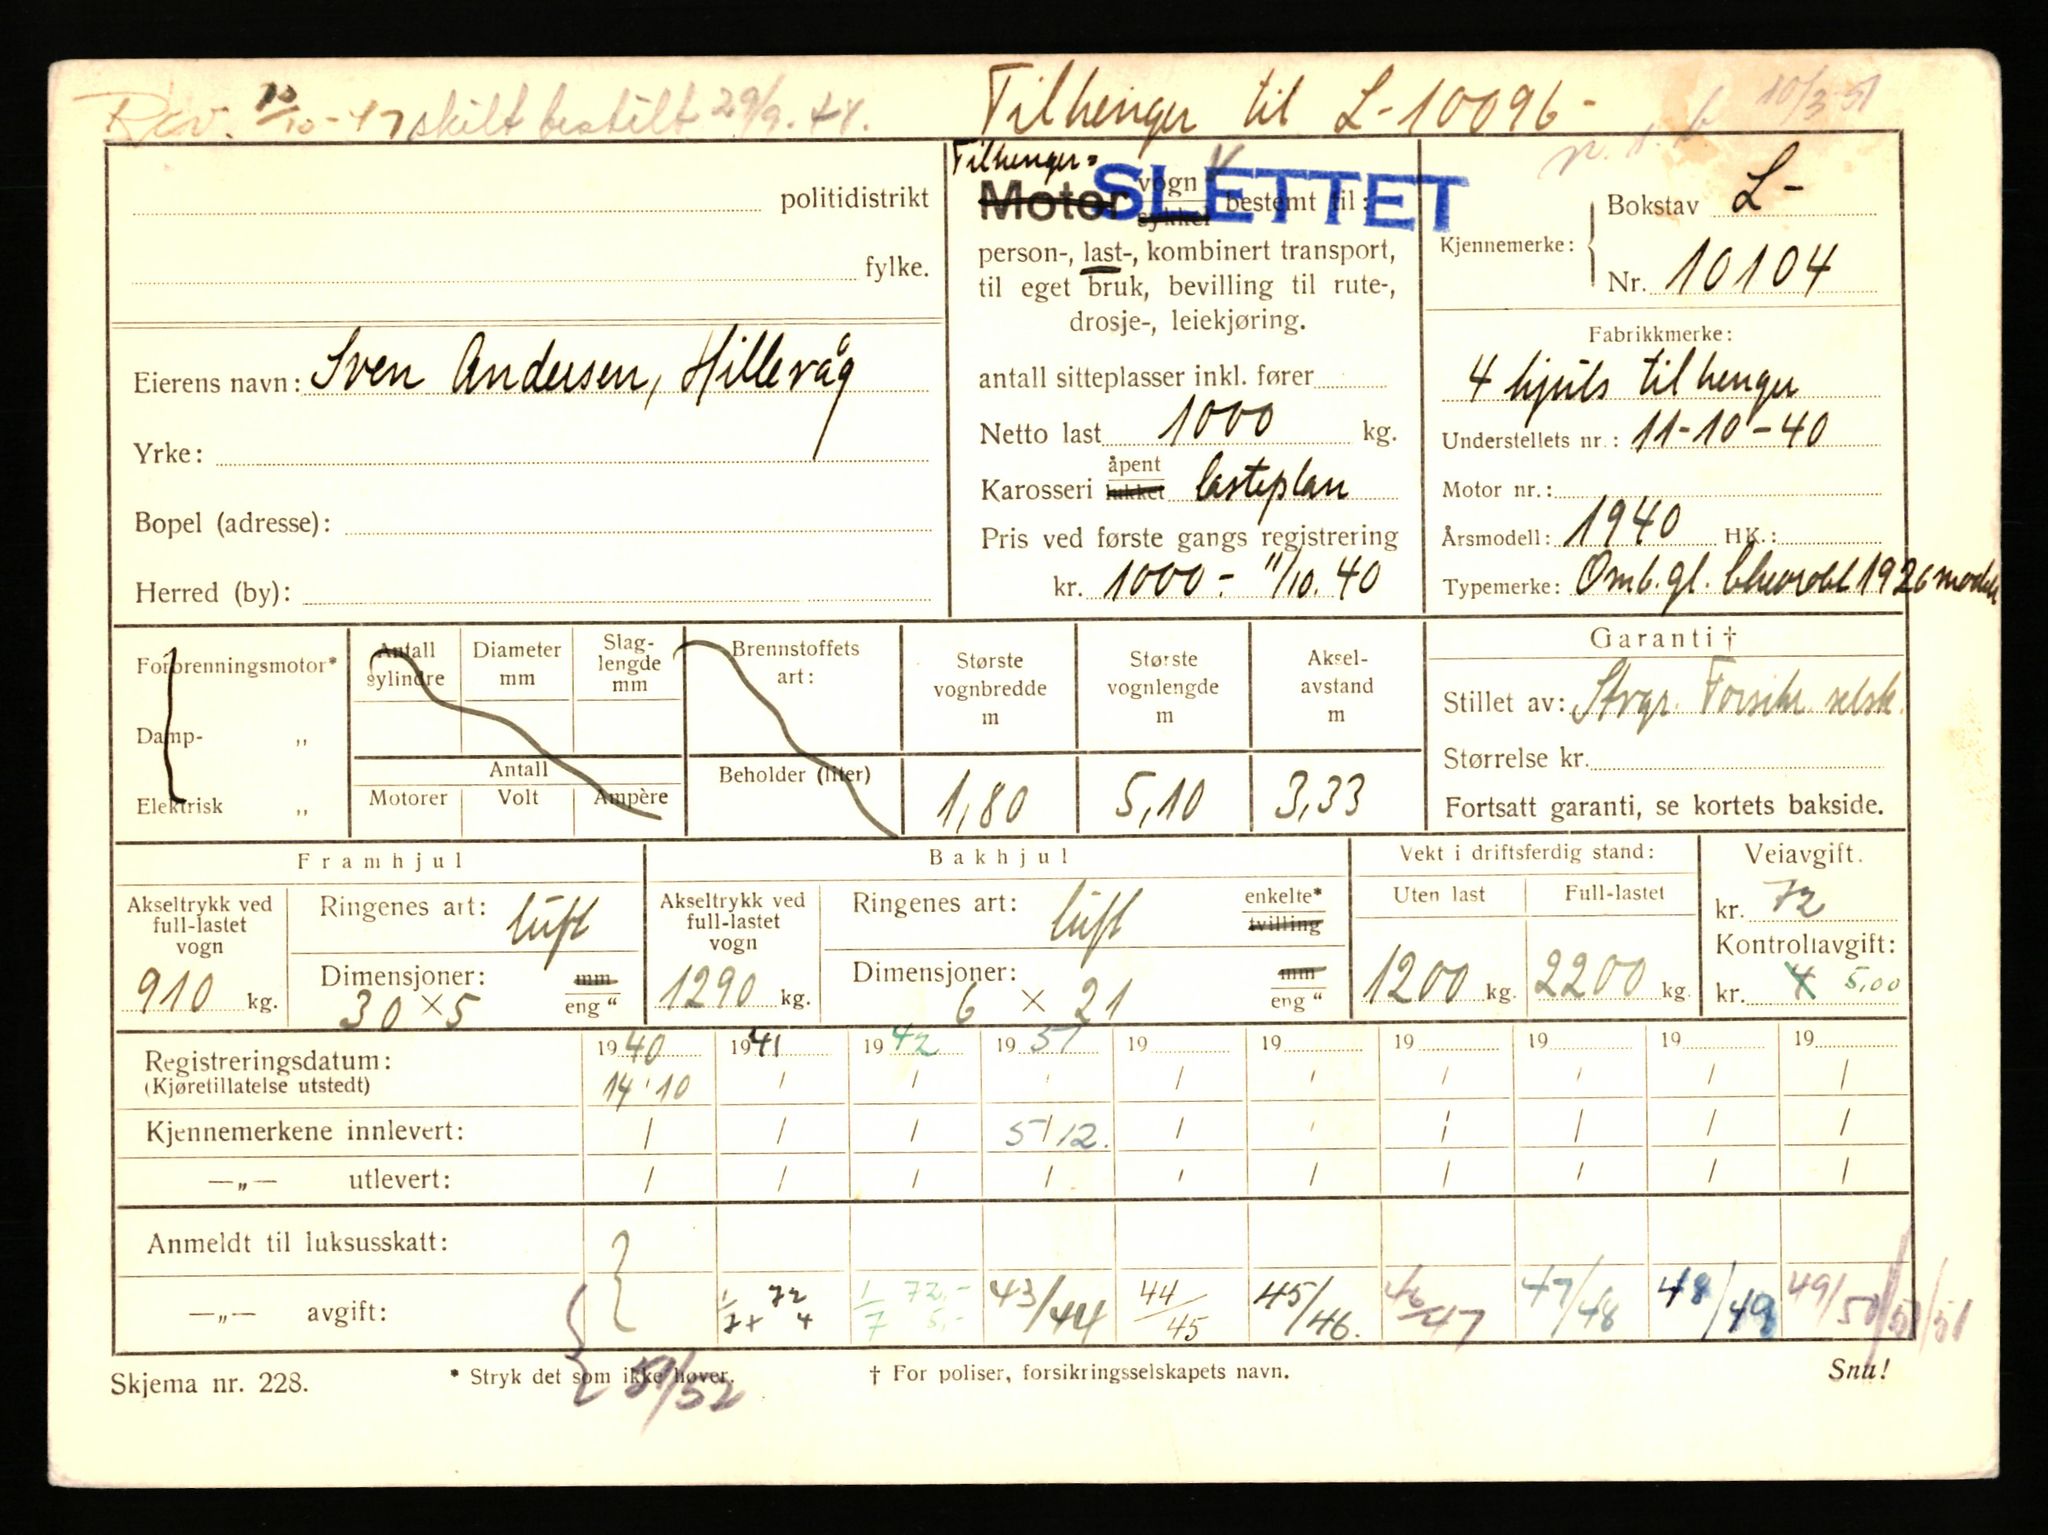 Rev. 10/10-47 skilt bestilt 29/9. 48.
Tilhenger til L-10096-
10/3-51
Tilhenger-
Motor vogn sykkel bestemt til:
SLETTET
person-, last-, kombinert transport,
til eget bruk, bevilling til rute-,
drosje-, leiekjøring.
antall sitteplasser inkl. fører
Netto last 1000 kg.
Karosseri åpent lukket lasteplan
Pris ved første gangs registrering
kr. 1000.- 11/10. 40
politidistrikt
fylke.
Eierens navn: Sven Andersen, Hillevåg
Yrke:
Bopel (adresse):
Herred (by):
Kjennemerke: Bokstav L-
Nr. 10104
Fabrikkmerke:
4 hjuls tilhenger
Understellets nr.: 11-10-40
Motor nr.:
Årsmodell: 1940 HK.:
Typemerke: Omb. gl. Chevrolet 1926 modell
Forbrenningsmotor*
Damp- „
Elektrisk „
Antall sylindre
Diameter mm
Slaglengde mm
Antall
Motorer Volt Ampère
Brennstoffets art:
Beholder (liter)
Største vognbredde m
1,80
Største vognlengde m
5,10
Akselavstand m
3,33
Garanti †
Stillet av: Stvgr. Forsikr. selsk.
Størrelse kr.
Fortsatt garanti, se kortets bakside.
Framhjul
Akseltrykk ved full-lastet vogn
910 kg.
Ringenes art: luft
Dimensjoner: mm
30 × 5 eng "
Bakhjul
Akseltrykk ved full-lastet vogn
1290 kg.
Ringenes art: luft enkelte* tvilling
Dimensjoner: mm
6 × 21 eng "
Vekt i driftsferdig stand:
Uten last Full-lastet
1200 kg. 2200 kg.
Veiavgift.
kr. 72
Kontrollavgift:
kr. 4 5,00
Registreringsdatum: 1940 1941 1942 1951 19 19 19 19 19 19
(Kjøretillatelse utstedt) 14/10 / / / / / / / / /
Kjennemerkene innlevert: / / / 5/12. / / / / / /
—„— utlevert: / / / / / / / / / /
Anmeldt til luksusskatt:
—„— avgift: 1/7 72 4 1/7 72,- 5,- 43/44 44/45 45/46. 46/47 47/48 48/49 49/50 50/51
51/52
Skjema nr. 228.
* Stryk det som ikke høver.
† For poliser, forsikringsselskapets navn.
Snu!